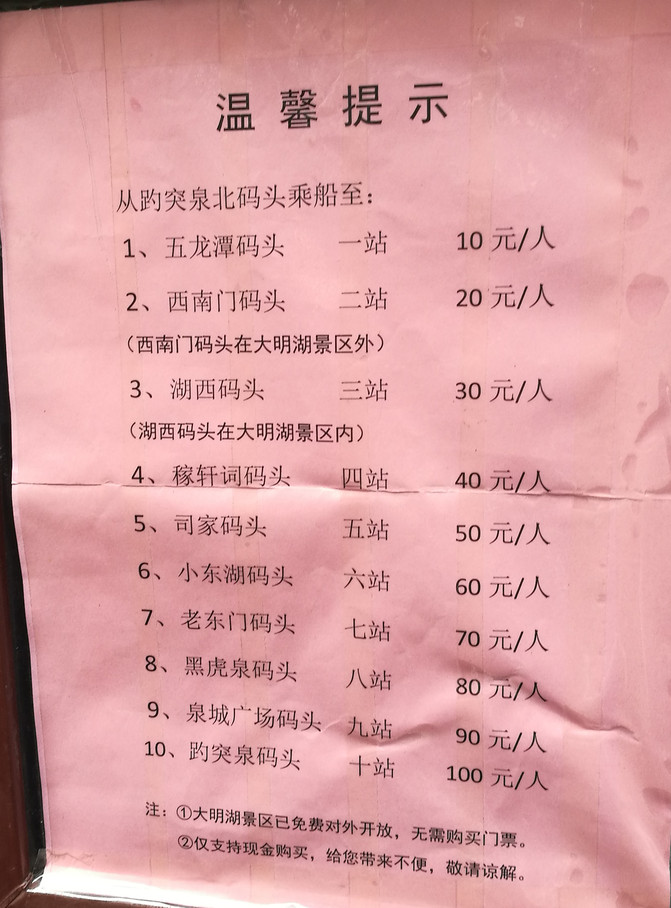 温馨提示
从趵突泉北码头乘船至：
1、五龙潭码头 一站 10 元/人
2、西南门码头 二站 20 元/人
（西南门码头在大明湖景区外）
3、湖西码头 三站 30 元/人
（湖西码头在大明湖景区内）
4、稼轩词码头 四站 40 元/人
5、司家码头 五站 50 元/人
6、小东湖码头 六站 60 元/人
7、老东门码头 七站 70 元/人
8、黑虎泉码头 八站 80 元/人
9、泉城广场码头 九站 90 元/人
10、趵突泉码头 十站 100 元/人
注：①大明湖景区已免费对外开放，无需购买门票。
②仅支持现金购买，给您带来不便，敬请谅解。